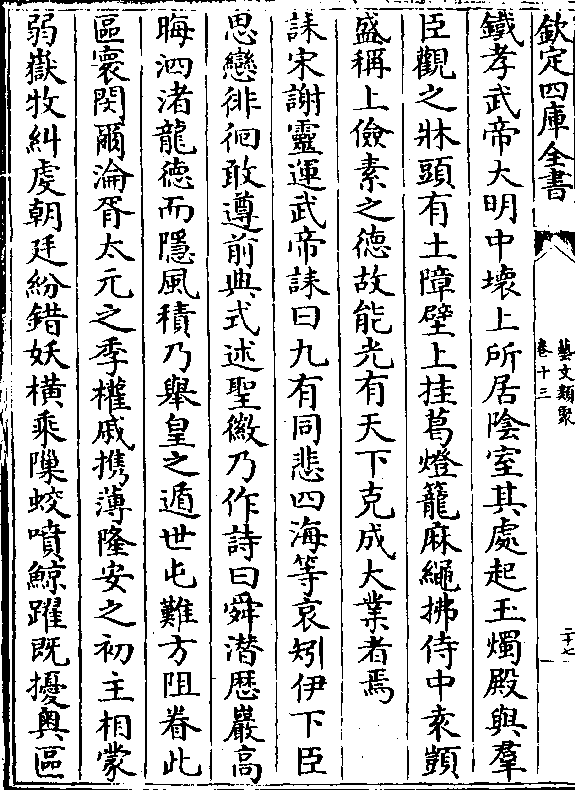 欽定四庫全書
藝文類聚
卷十三
二十七
鐵孝武帝大明中壞上所居陰室其處起玉燭殿與羣
臣觀之牀頭有土障壁上挂葛燈籠麻繩拂侍中袁顗
盛稱上儉素之德故能光有天下克成大業者焉
誄宋謝靈運武帝誄曰九有同悲四海等哀矧伊下臣
思戀徘徊敢遵前典式述聖徽乃作詩曰舜潛歷巖高
晦泗渚龍德而隱風積乃舉皇之遁世屯難方阻眷此
區寰閔爾淪胥太元之季權戚攜薄隆安之初主相蒙
弱嶽牧糾虔朝廷紛錯妖橫乘隟蛟噴鯨躍既擾奧區